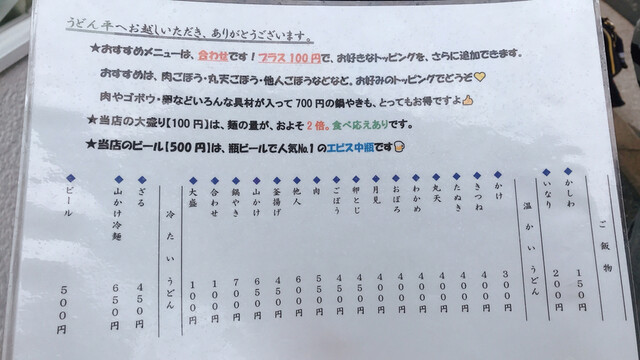 うどん平へお越しいただき、ありがとうございます。
★おすすめメニューは、合わせです！プラス100円で、お好きなトッピングを、さらに追加できます。
おすすめは、肉ごぼう・丸天ごぼう・他人ごぼうなどなど。お好みのトッピングでどうぞ💛
肉やゴボウ・卵などいろんな具材が入って700円の鍋やきも、とってもお得ですよ👍
★当店の大盛り【100円】は、麺の量が、およそ2倍。食べ応えありです。
★当店のビール【500円】は、瓶ビールで人気№1のエビス中瓶です🍺
ご飯物
◆かしわ 150円
◆いなり 200円
温かいうどん
◆かけ 300円
◆きつね 400円
◆たぬき 400円
◆丸天 400円
◆わかめ 400円
◆おぼろ 400円
◆月見 400円
◆卵とじ 450円
◆ごぼう 450円
◆肉 550円
◆他人 600円
◆釜揚げ 450円
◆山かけ 650円
◆鍋やき 700円
◆合わせ 100円
◆大盛 100円
冷たいうどん
◆ざる 450円
◆山かけ冷麺 650円
◆ビール 500円